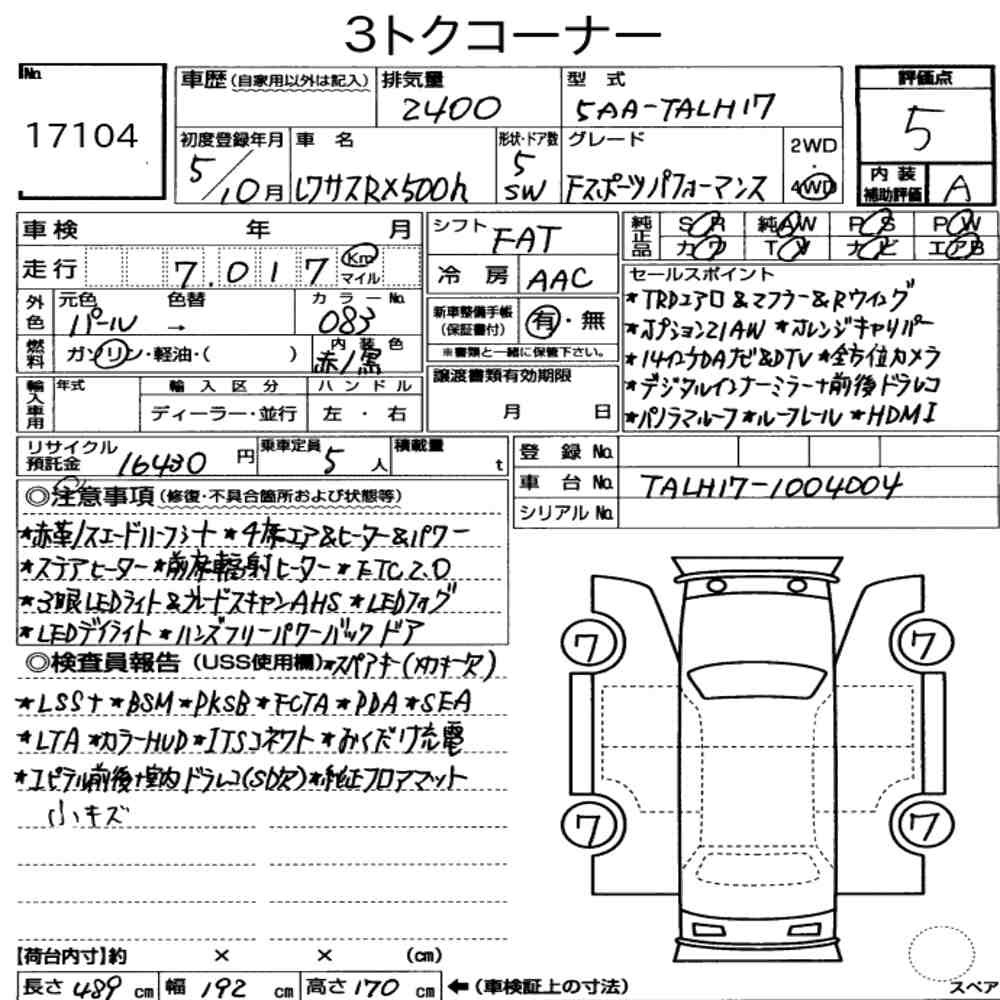 3トクコーナー
No.
17104
車歴 (自家用以外は記入)
排気量
2400
型 式
5AA-TALH17
評価点
5
初度登録年月
5/10月
車 名
レクサスRX500h
形状・ドア数
5
SW
グレード
Fスポーツパフォーマンス
2WD
・
4WD
内 装
補助評価
A
車検 年 月
走行 7.017 Km マイル
シフト
FAT
冷 房 AAC
純正品
SR 純AW PS PW
カワ TV ナビ エアB
外色
元色 色替
パール →
カラーNo.
083
燃料
ガソリン・軽油・( )
内 装 色
赤/黒
新車整備手帳
(保証書付)
有・無
※書類と一緒に保管下さい。
セールスポイント
*TRDエアロ&マフラー&Rウイング
*オプション21AW *オレンジキャリパー
*14インチDAナビ&DTV *全方位カメラ
*デジタルインナーミラー+前後ドラレコ
*パノラマルーフ *ルーフレール *HDMI
輸入車用
年式
輸 入 区 分
ディーラー・並行
ハ ン ド ル
左 ・ 右
譲渡書類有効期限
月 日
リサイクル
預託金 16430 円
乗車定員
5 人
積載量
t
登 録 No.
車 台 No. TALH17-1004004
シリアル No.
◎注意事項 (修復・不具合箇所および状態等)
*赤革/スエードハーフシート *4席エア&ヒーター&パワー
*ステアヒーター *前席輻射ヒーター *ETC2.0
*3眼LEDライト&ブレードスキャンAHS *LEDフォグ
*LEDデイライト *ハンズフリーパワーバックドア
◎検査員報告 (USS使用欄) *スペアキー(メカキー欠)
*LSS+ *BSM *PKSB *FCTA *PDA *SEA
*LTA *カラーHUD *ITSコネクト *おくだけ充電
*ユピテル前後+室内ドラレコ(SD欠) *純正フロアマット
小キズ
7
7
7
7
【荷台内寸】約 × × (cm)
長さ 489 cm 幅 192 cm 高さ 170 cm ←(車検証上の寸法)
スペア